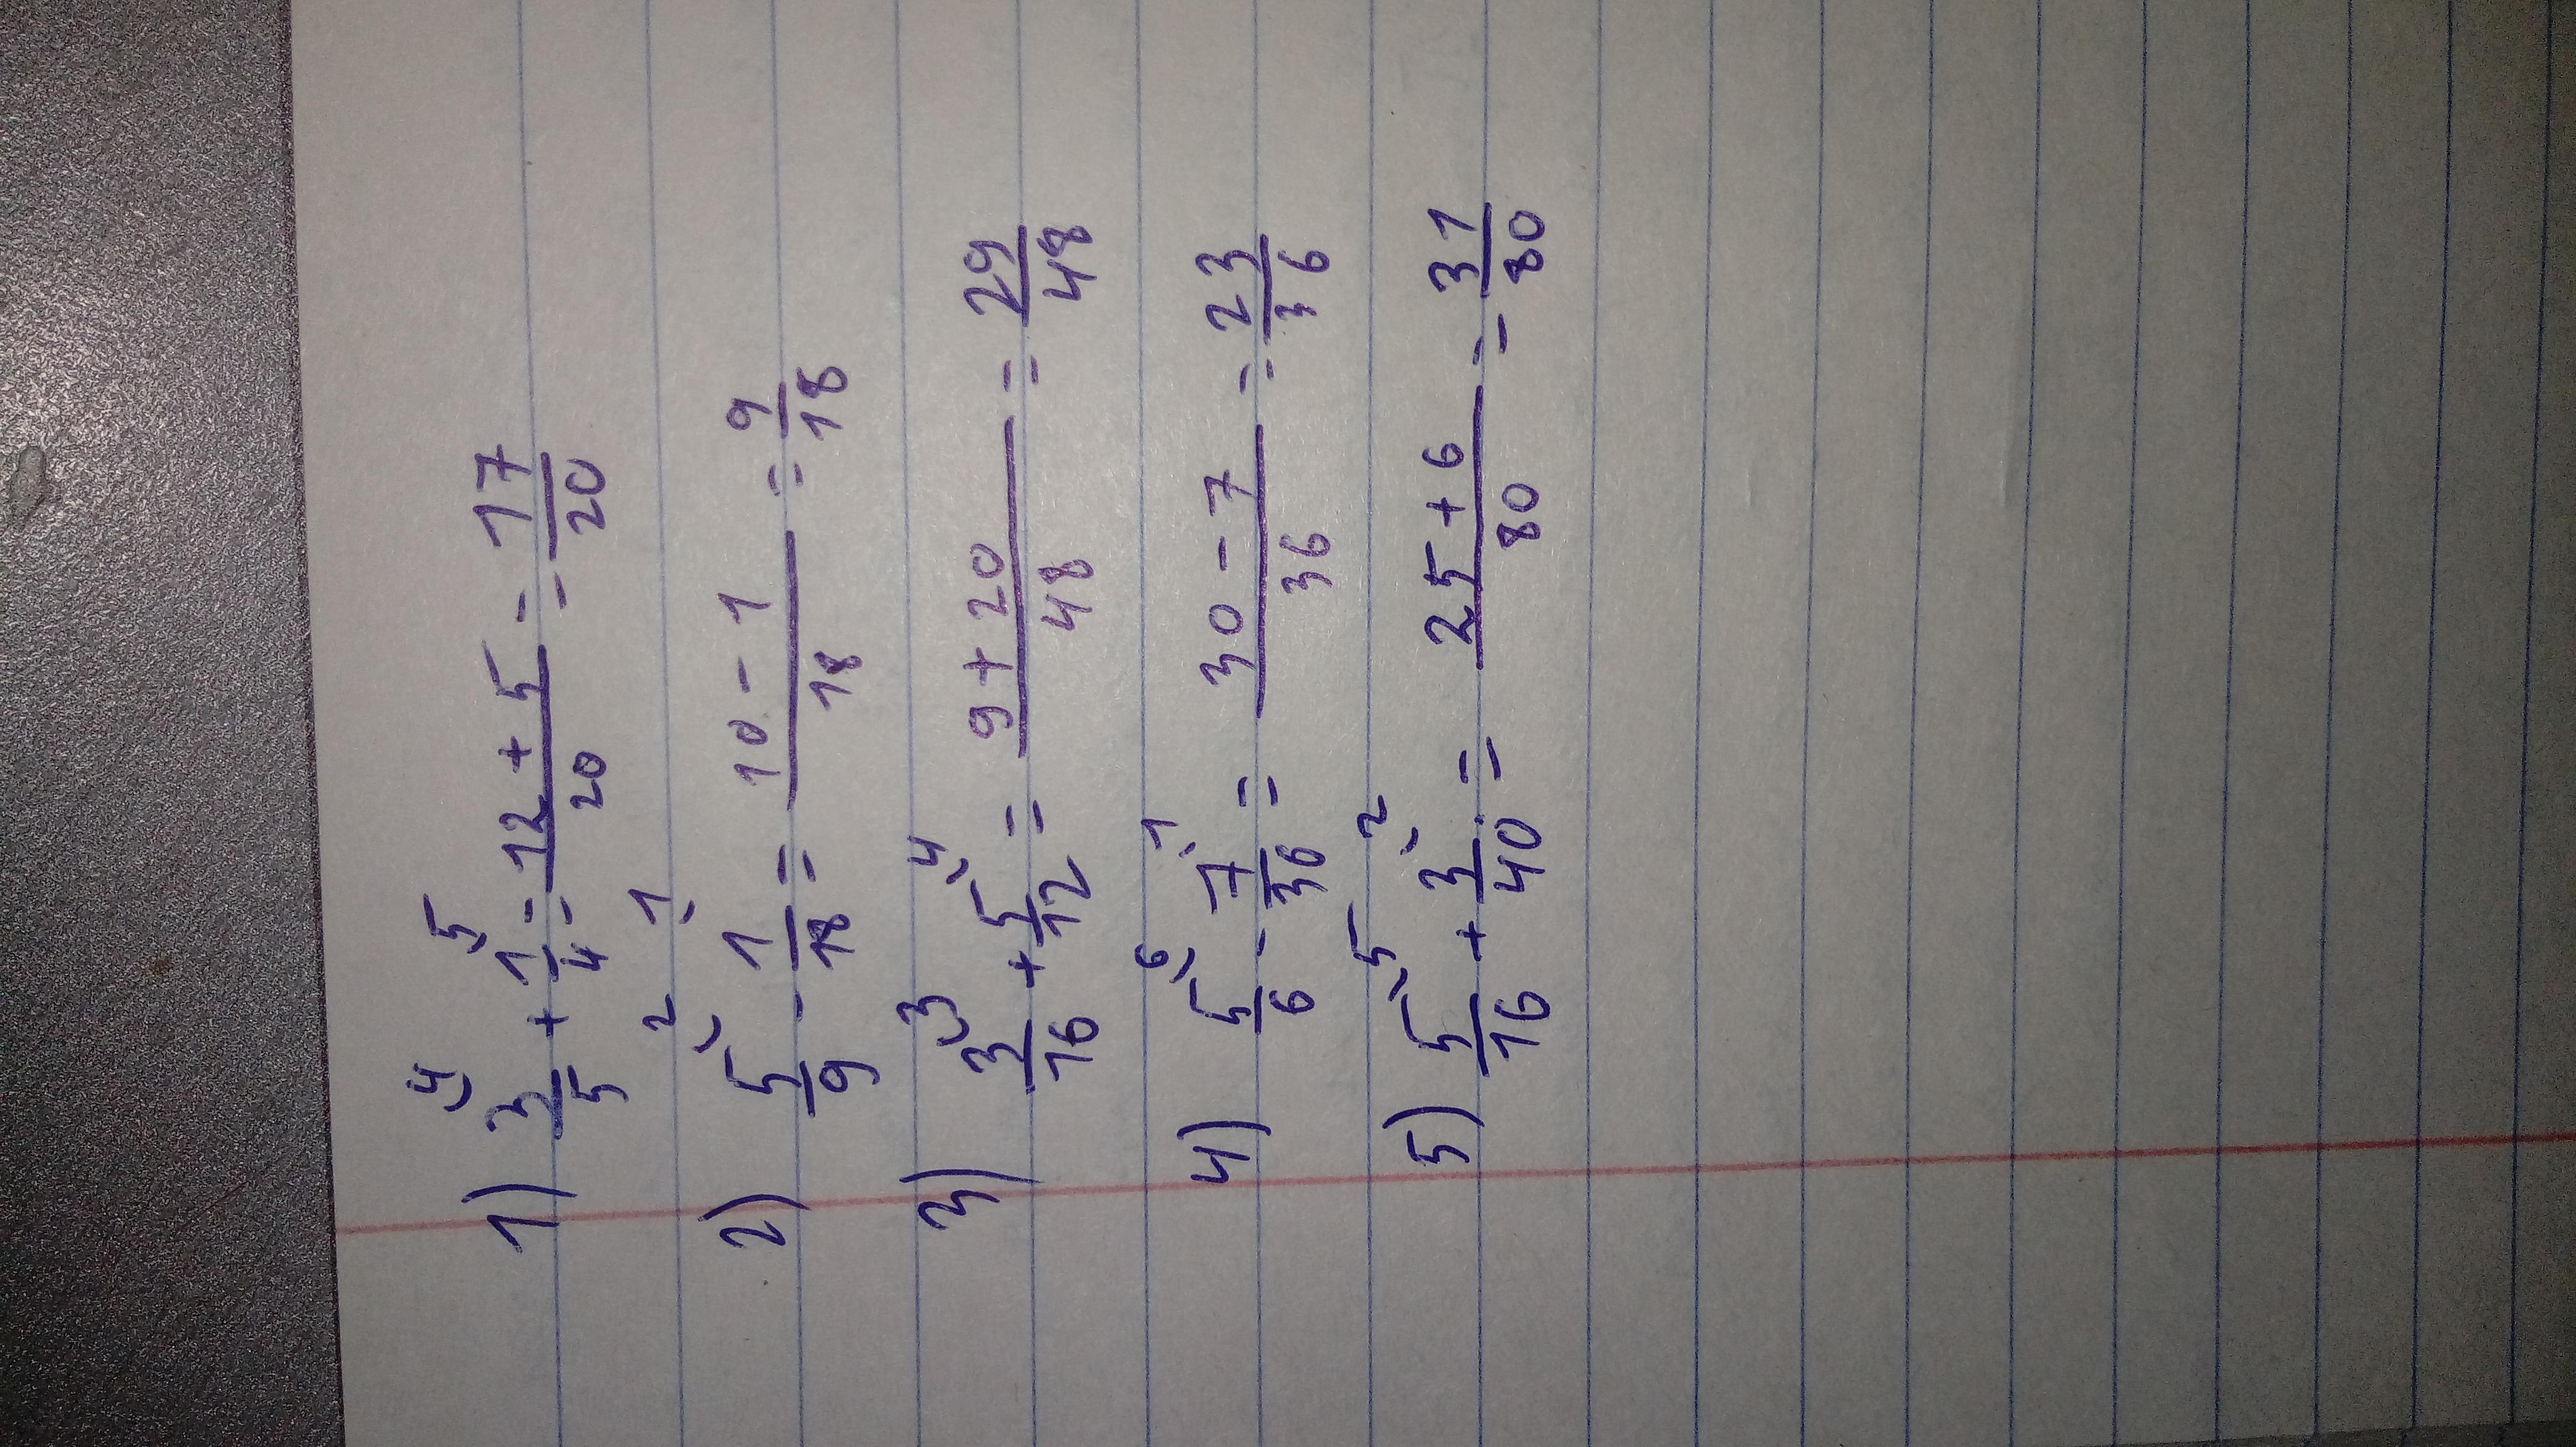 1) 3/5 ⁴ + 1/4 ⁵ = 12 + 5/20 = 17/20
2) 5/9 ² - 1/18 ¹ = 10 - 1/18 = 9/18
3) 3/16 ³ + 5/12 ⁴ = 9 + 20/48 = 29/48
4) 5/6 ⁶ - 7/36 ¹ = 30 - 7/36 = 23/36
5) 5/16 ⁵ + 3/40 ² = 25 + 6/80 = 31/80